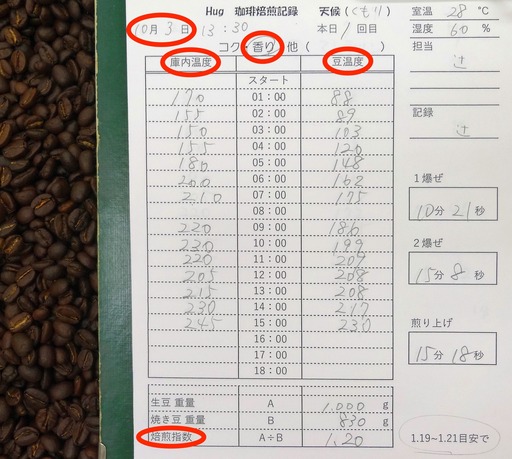 Hug 珈琲焙煎記録 天候(くもり) 室温 28 °C
10月 3日 13:30 本日 1 回目 湿度 60 %
コク・香り・他( ) 担当
庫内温度 豆温度 辻
スタート
170 01:00 88
155 02:00 89
150 03:00 103 記録
155 04:00 120 辻
180 05:00 148
200 06:00 162
210 07:00 175 1爆ぜ
08:00 10分 21秒
220 09:00 186
230 10:00 199
220 11:00 209 2爆ぜ
205 12:00 208 15分 8秒
215 13:00 208
230 14:00 217
245 15:00 230 煎り上げ
16:00 15分 18秒
17:00
18:00
生豆 重量 A 1.000 g
焼き豆 重量 B 830 g
焙煎指数 A÷B 1.20 1.19~1.21目安で